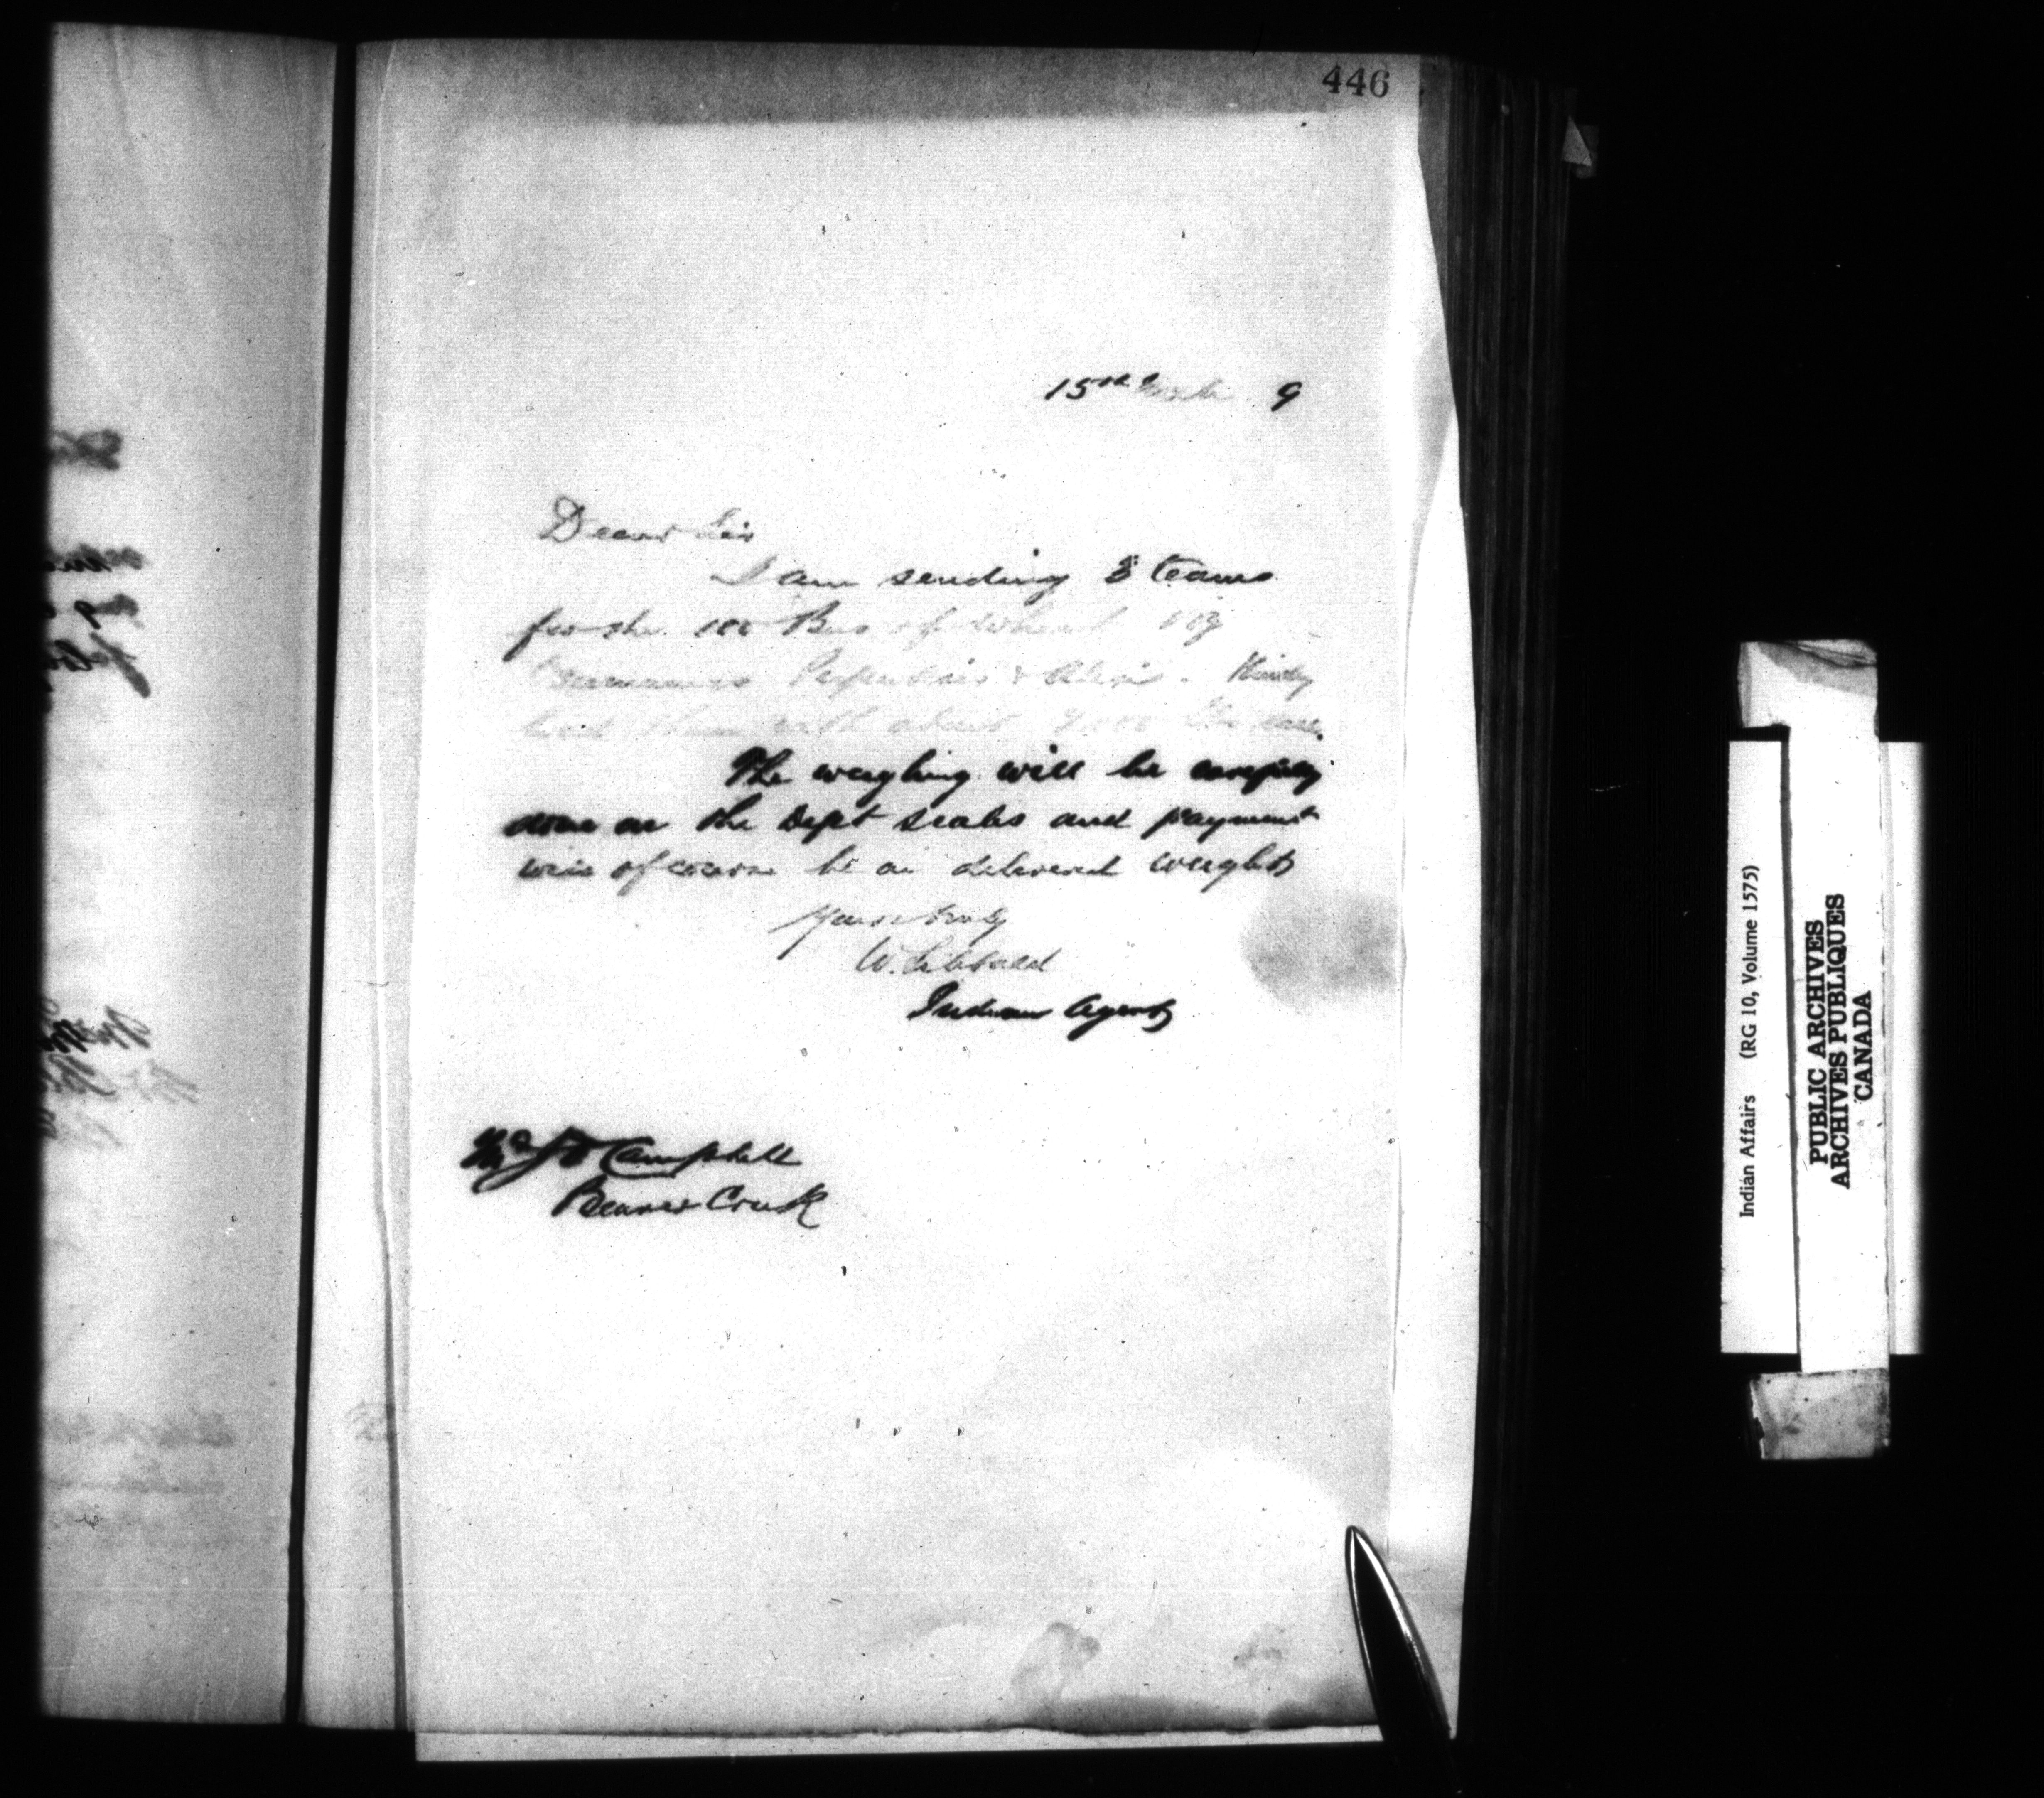 446
15th March 9
Dear Sir
I am sending 3 teams
for the 100 Bus of wheat viz
& Alexis. Kindly
load them with about 2000 lbs each
The weighing will be carefully
done on the Dept scales and payment
will of course be on delivered weights
Yours truly
W. Sibbald
Indian Agent
Campbell
Beaver Creek
Indian Affairs (RG 10, Volume 1575)
PUBLIC ARCHIVES
ARCHIVES PUBLIQUES
CANADA